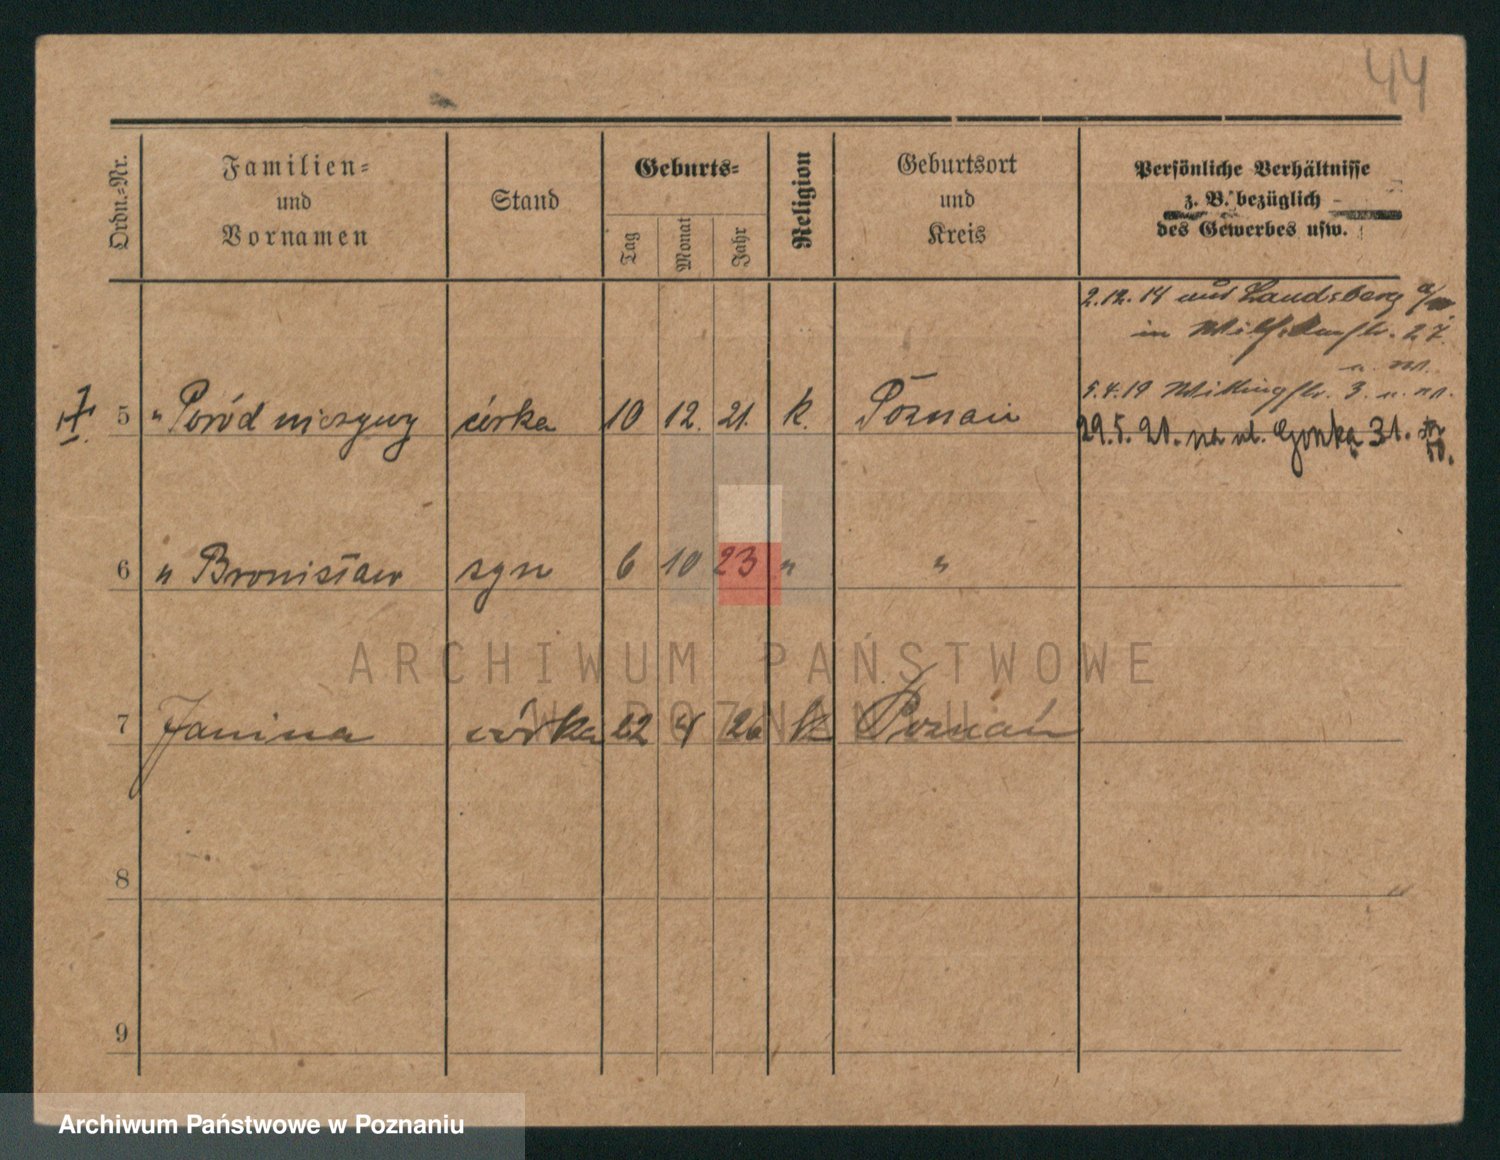 44
Ordn.-Nr.
Familien-
und
Vornamen
Stand
Geburts-
Tag
Monat
Jahr
Religion
Geburtsort
und
Kreis
Persönliche Verhältnisse
z. B. bezüglich
des Gewerbes usw.
2.12.14 aus Landsberg a/w
in 27.
5.4.19 3.
5 " Poród nieżywy córka 10 12. 21. k. Poznań
29.5.21. na ul. Gorka 31.
6 " Bronisław syn 6 10 23 " "
ARCHIWUM PAŃSTWOWE
W POZNANIU
7 Janina córka 22 4 26 k Poznań
8
9
Archiwum Państwowe w Poznaniu